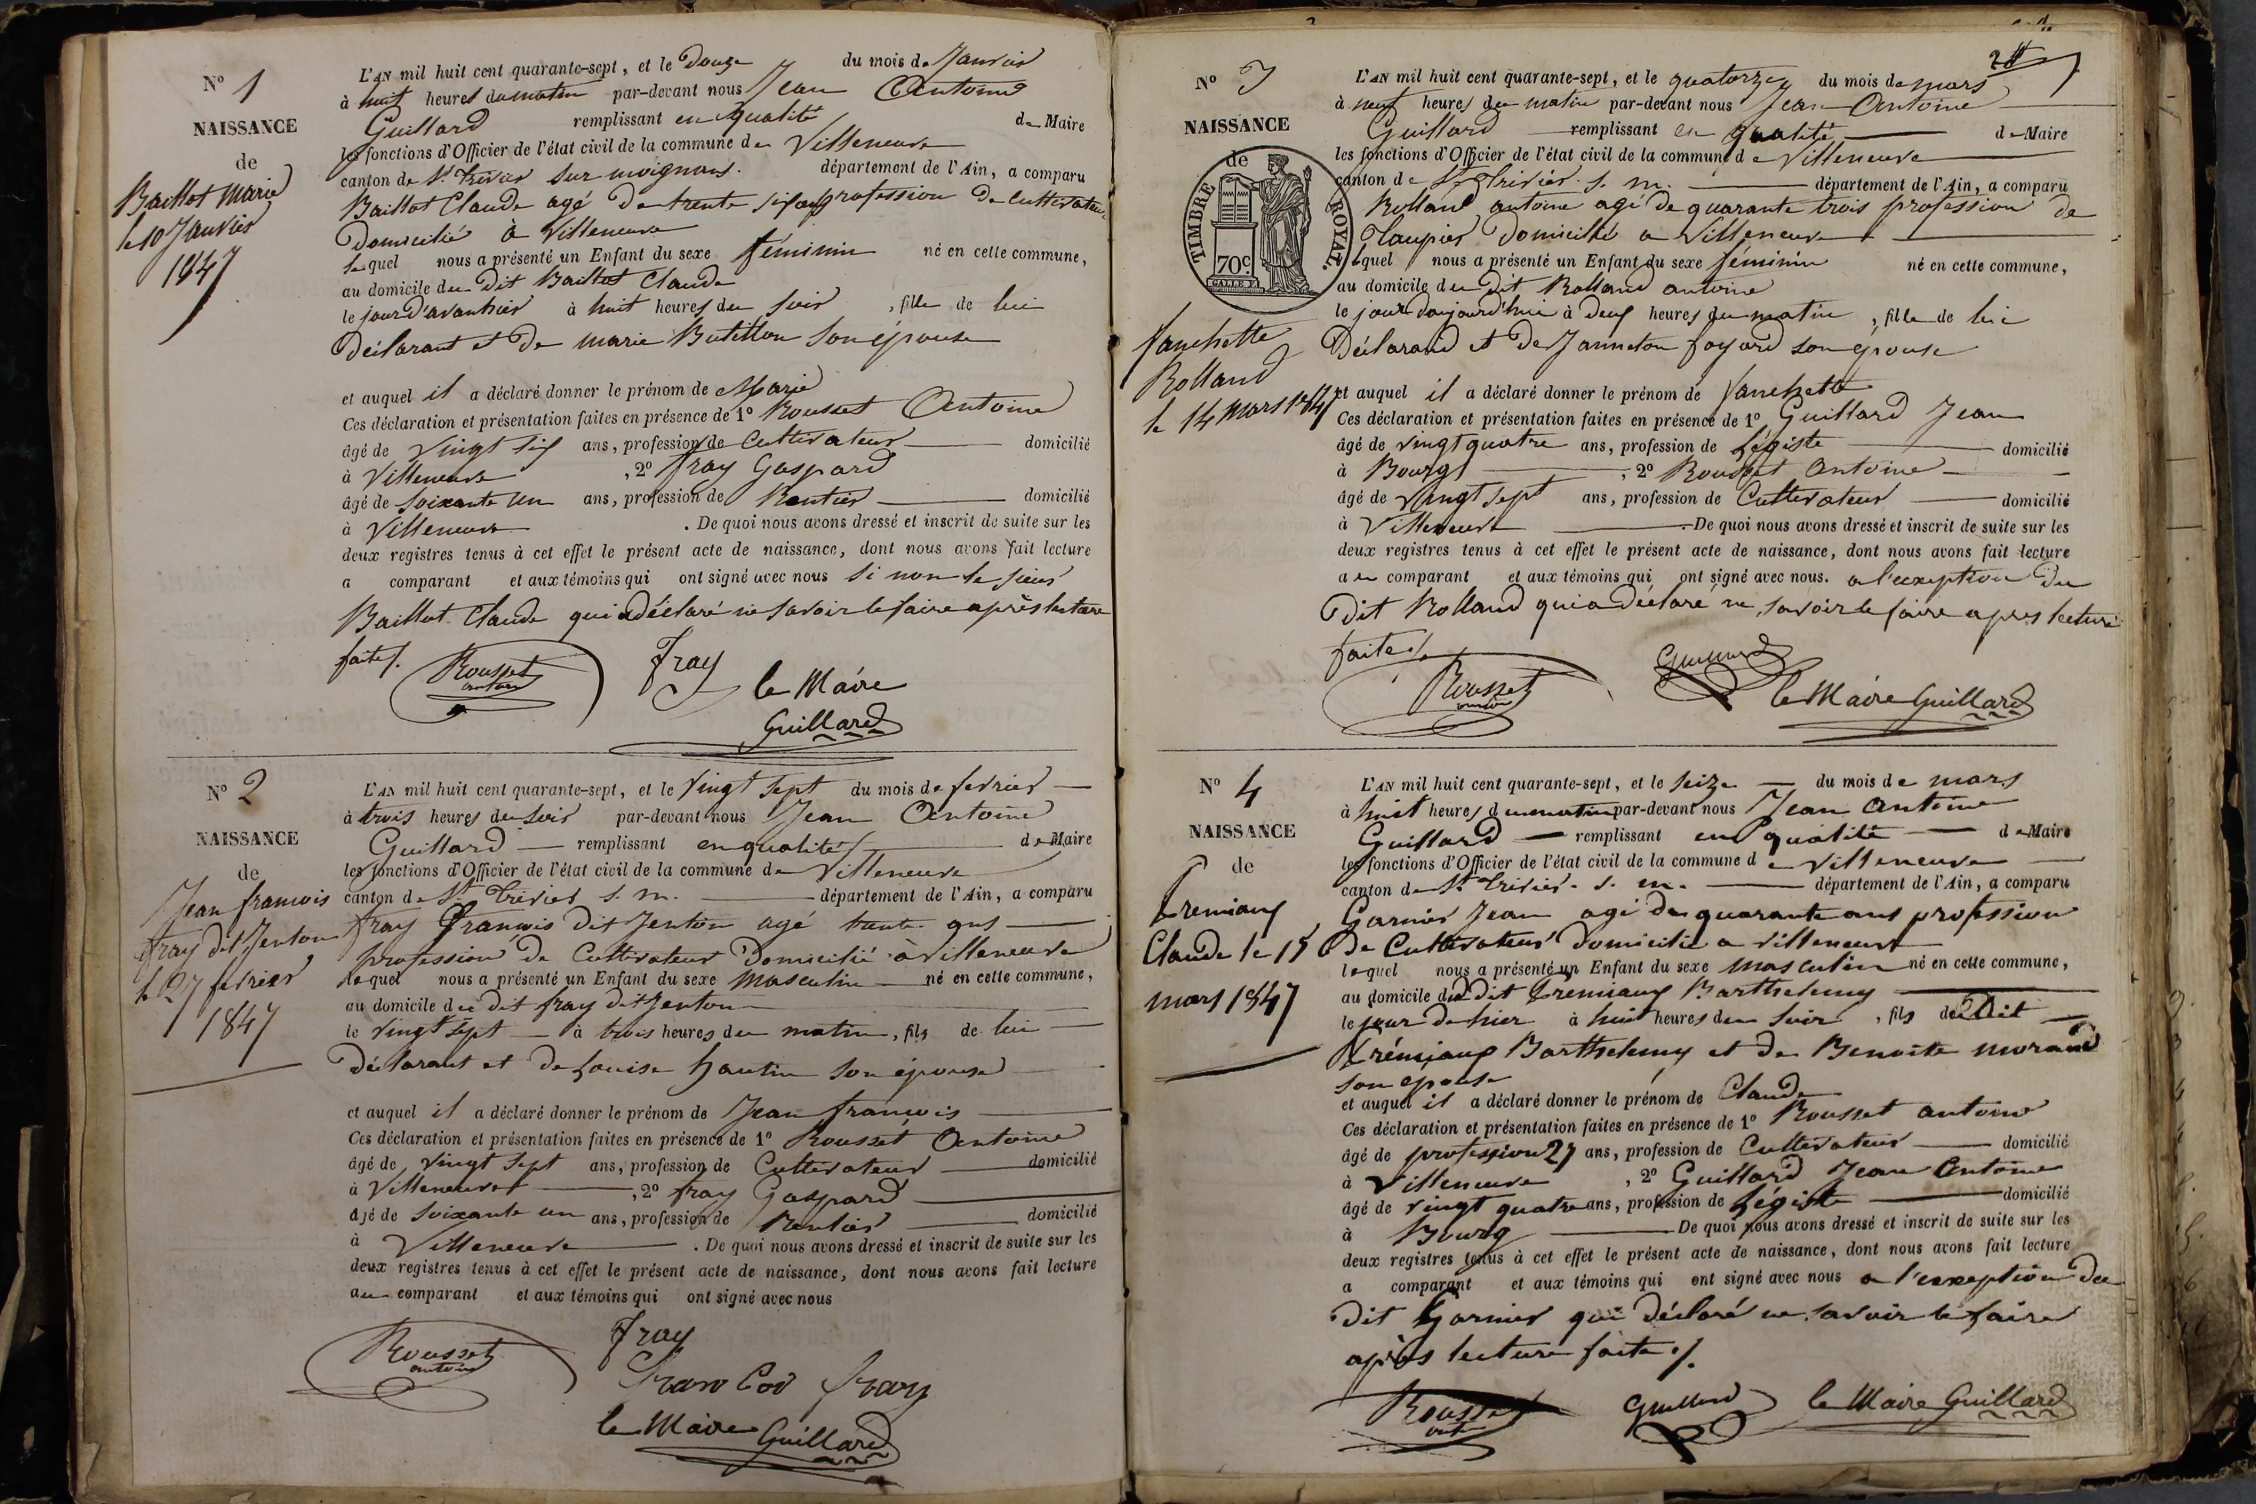 N° 1
NAISSANCE
de
Baillot Marie
le 10 Janvier
1847
L'AN mil huit cent quarante-sept, et le Douze du mois de Janvier
à huit heures du matin par-devant nous Jean Antoine
Guillard remplissant en qualité de Maire
les fonctions d'Officier de l'état civil de la commune de Villeneuve
canton de St. Trivier sur moignans. département de l'Ain, a comparu
Baillot Claude agé de trente six ans profession de cultivateur
Domicilié à Villeneuve
lequel nous a présenté un Enfant du sexe féminin né en cette commune,
au domicile du dit Baillot Claude
le jour d'avanthier à huit heures du soir, fille de lui
Déclarant et de marie Butillon son épouse
et auquel il a déclaré donner le prénom de Marie
Ces déclaration et présentation faites en présence de 1° Rousset Antoine
âgé de vingt six ans, profession de Cultivateur domicilié
à Villeneuve, 2° fray Gaspard
âgé de soixante un ans, profession de Rentier domicilié
à Villeneuve. De quoi nous avons dressé et inscrit de suite sur les
deux registres tenus à cet effet le présent acte de naissance, dont nous avons fait lecture
a comparant et aux témoins qui ont signé avec nous si non le sieur
Baillot Claude qui a déclaré ne savoir le faire après lecture
faite /.
Rousset antoine
Fray
le Maire
Guillard
N° 2
NAISSANCE
de
Jean francois
fray dit Jenton
le 27 fevrier
1847
L'AN mil huit cent quarante-sept, et le Vingt sept du mois de fevrier
à trois heures du soir par-devant nous Jean Antoine
Guillard remplissant en qualité de Maire
les fonctions d'Officier de l'état civil de la commune de Villeneuve
canton de St. Trivier s. m. département de l'Ain, a comparu
fray François dit Jenton agé trente ans
profession de Cultivateur Domicilié à villeneuve
lequel nous a présenté un Enfant du sexe masculin né en cette commune,
au domicile du dit fray dit Jenton
le vingt sept à trois heures du matin, fils de lui
Déclarant et de Louise hautin son épouse
et auquel il a déclaré donner le prénom de Jean françois
Ces déclaration et présentation faites en présence de 1° Rousset Antoine
âgé de vingt sept ans, profession de Cultivateur domicilié
à Villeneuve, 2° fray Gaspard
âgé de soixante un ans, profession de Rentier domicilié
à Villeneuve. De quoi nous avons dressé et inscrit de suite sur les
deux registres tenus à cet effet le présent acte de naissance, dont nous avons fait lecture
au comparant et aux témoins qui ont signé avec nous
Rousset antoine
fray
fray
le Maire Guillard
N° 3
NAISSANCE
de
TIMBRE ROYAL.
70c.
fanchette
Rolland
le 14 mars 1847
L'AN mil huit cent quarante-sept, et le quatorze du mois de mars
à neuf heures du matin par-devant nous Jean Antoine
Guillard remplissant en qualité de Maire
les fonctions d'Officier de l'état civil de la commune de Villeneuve
canton de St. Trivier. s. m. département de l'Ain, a comparu
Rolland antoine agé de quarante trois profession de
Taupier Domicilié a Villeneuve
lequel nous a présenté un Enfant du sexe féminin né en cette commune,
au domicile du Dit Rolland antoine
le jour daujourd'hui à deux heures du matin, fille de lui
Déclarand et de Janneton foyard son epouse
et auquel il a déclaré donner le prénom de fanchette
Ces déclaration et présentation faites en présence de 1° Guillard Jean
âgé de vingt quatre ans, profession de Légiste domicilié
à Bourg, 2° Rousset Antoine
âgé de Vingt sept ans, profession de Cultivateur domicilié
à Villeneuve. De quoi nous avons dressé et inscrit de suite sur les
deux registres tenus à cet effet le présent acte de naissance, dont nous avons fait lecture
au comparant et aux témoins qui ont signé avec nous. a l'exception Du
Dit Rolland qui a déclaré ne savoir le faire apres lecture
faite /.
Rousset antoine
Guillard
le Maire Guillard
N° 4
NAISSANCE
de
Tremiaux
Claude le 15
mars 1847
L'AN mil huit cent quarante-sept, et le seize du mois de mars
à huit heures du matin par-devant nous Jean Antoine
Guillard remplissant en qualité de Maire
les fonctions d'Officier de l'état civil de la commune de Villeneuve
canton de St. Trivier. s. m. département de l'Ain, a comparu
Garnier Jean agé de quarante ans profession
De Cultivateur Domicilié a villeneuve
lequel nous a présenté un Enfant du sexe masculin né en cette commune,
au domicile du dit Tremiaux Barthelemy
le jour de hier à huit heures du soir, fils du Dit
Trémiaux Barthelemy et de Benoite morand
son epouse
et auquel il a déclaré donner le prénom de Claude
Ces déclaration et présentation faites en présence de 1° Rousset antoine
âgé de profession 27 ans, profession de Cultivateur domicilié
à Villeneuve, 2° Guillard Jean Antoine
âgé de vingt quatre ans, profession de Légiste domicilié
à Bourg De quoi nous avons dressé et inscrit de suite sur les
deux registres tenus à cet effet le présent acte de naissance, dont nous avons fait lecture
a comparant et aux témoins qui ont signé avec nous a l'exception du
Dit Garnier qui déclaré ne savoir le faire
après lecture faite /.
Rousset
Guillard
le Maire Guillard